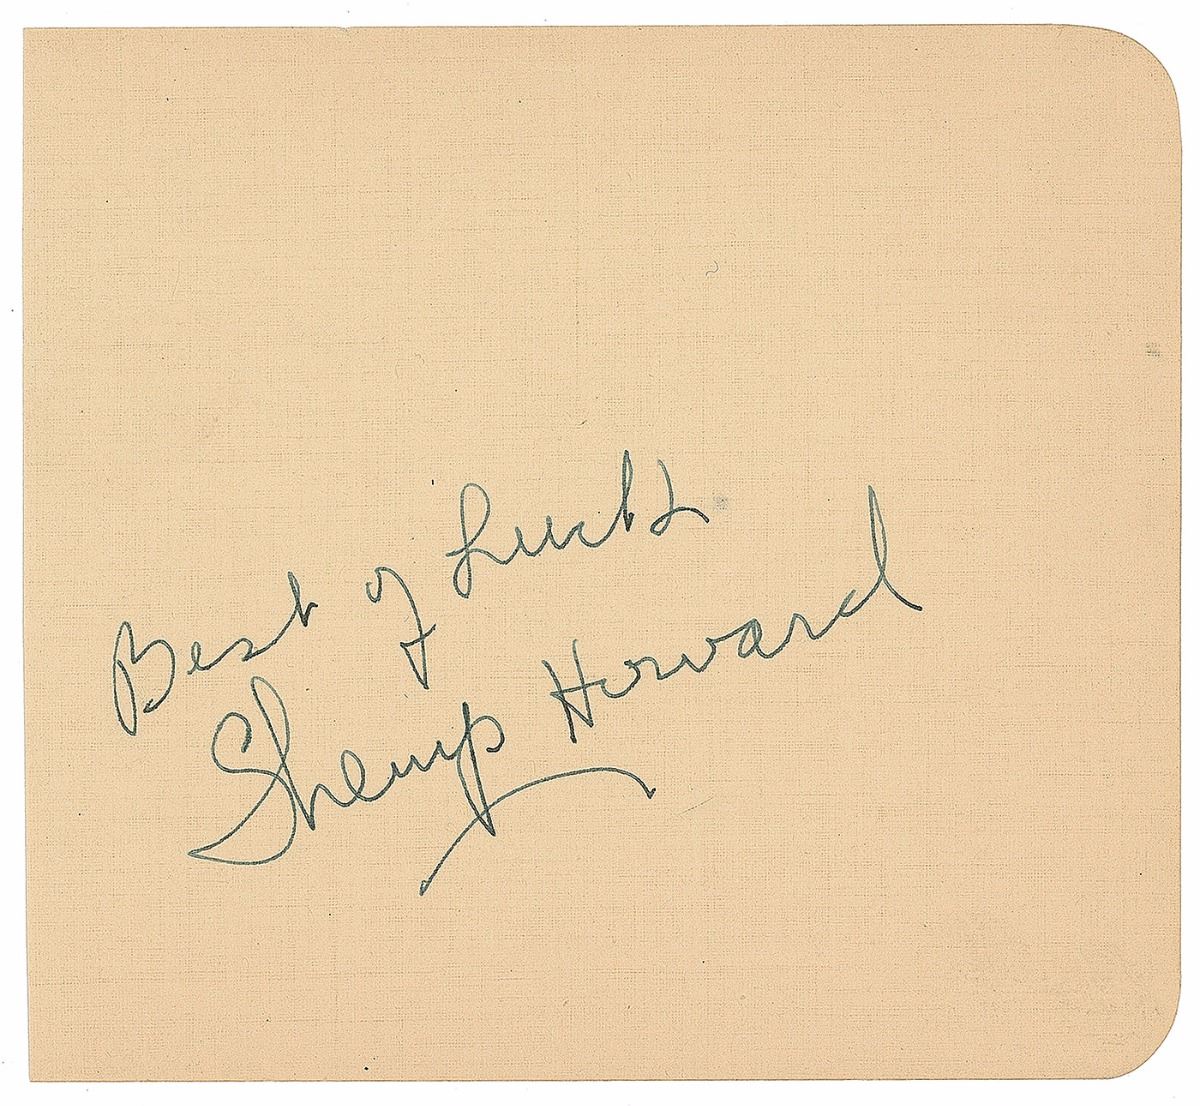 Best of Luck
Shemp Howard